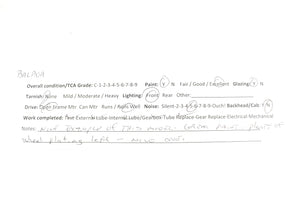 BALBOA
Overall condition/TCA Grade: C-1-2-3-4-5-6-7-8-9 Paint: Y N Fair / Good / Excellent Glazing: Y N
Tarnish: None Mild / Moderate / Heavy Lighting: Front Rear Other:
Drive: Open frame Mtr Can Mtr Runs / Runs Well Noise: Silent-2-3-4-5-6-7-8-9-Ouch! Backhead/Cab: Y N
Work completed: Test External Lube Internal Lube/Gearbox Tube Replace Gear Replace Electrical Mechanical
Notes: NICE EXAMPLE OF THIS MODEL. PAINT PLENTY OF
wheel plating left - NICE ONE.